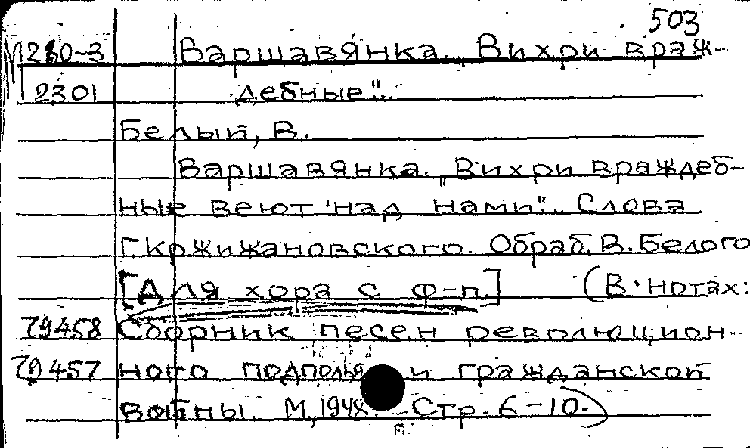 503
М280-3 Варшавянка. „Вихри враж-
2301 дебные".
Белый, В.
Варшавянка. „Вихри враждеб-
ные веют над нами". Слова
Г. Кржижановского. Обраб. В. Белого
[Для хора с ф-п.] (В нотах:
79458 Сборник песен революцион-
79457 ного подполья и гражданской
войны. М, 1948. Стр. 6-10.)